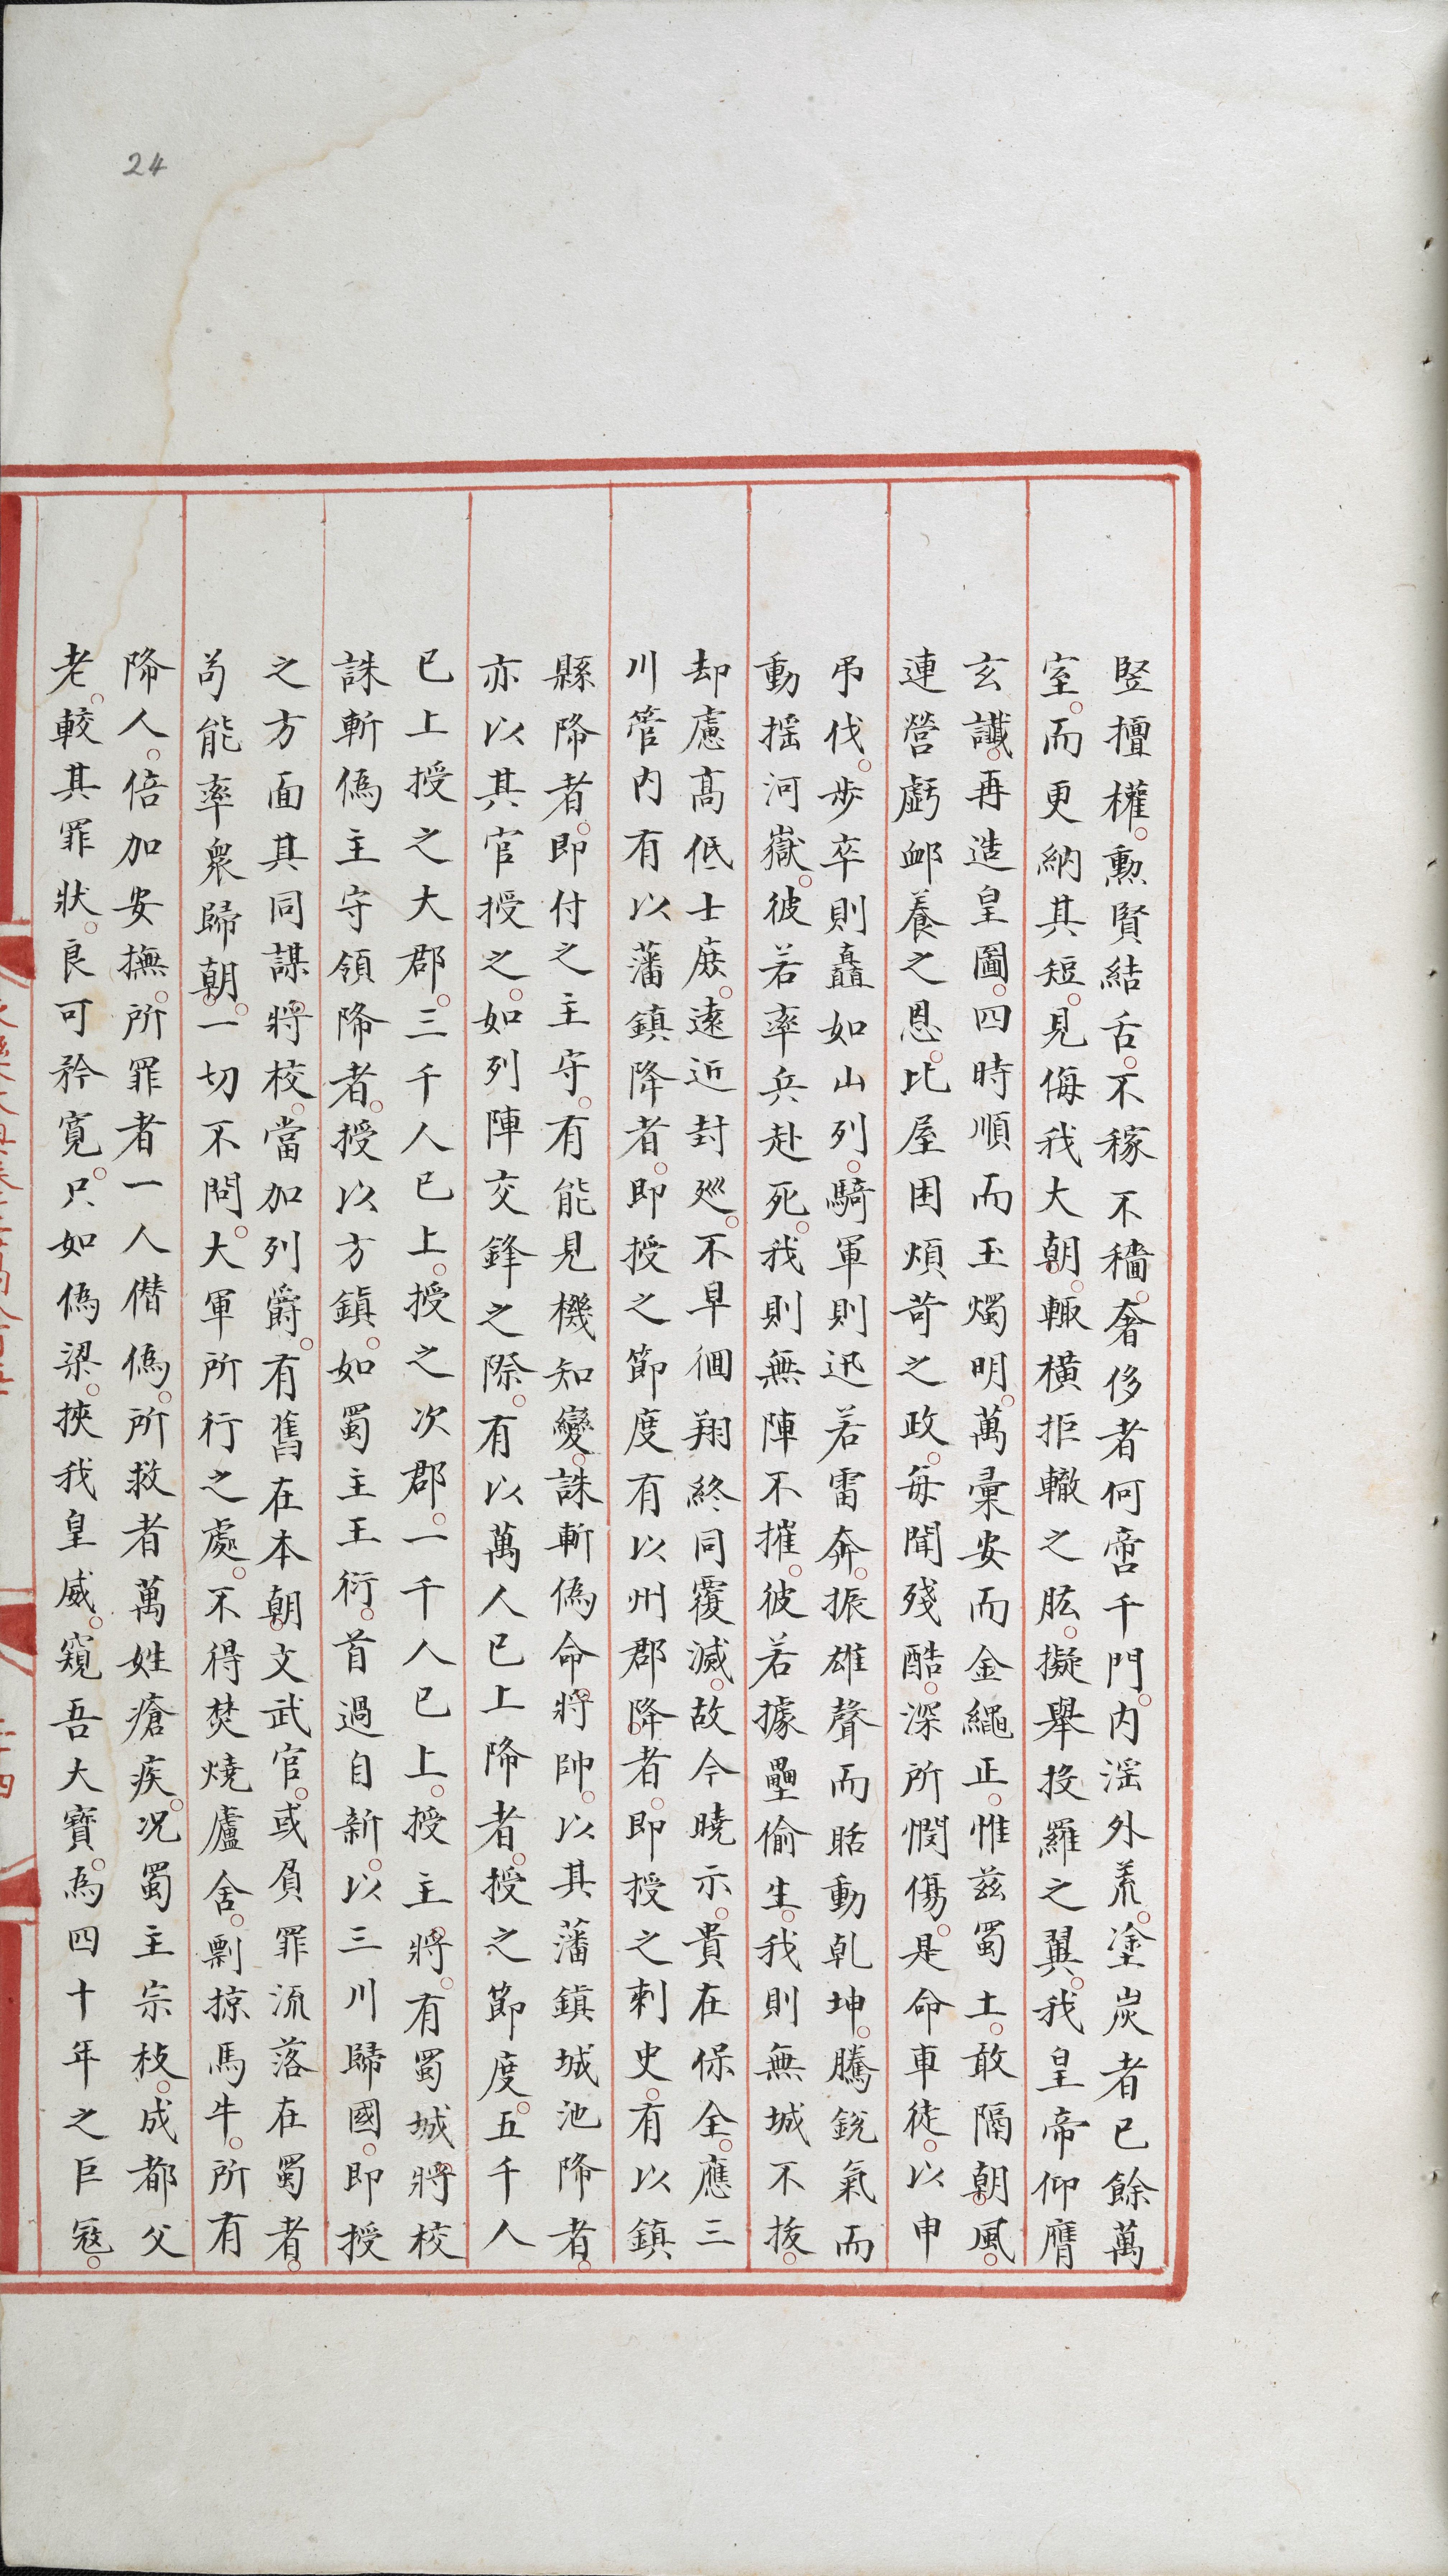 24
竪擅權。勲賢結舌。不稼不穡。奢侈者何啻千門。内滛外荒。塗炭者已餘萬
室。而更納其短。見侮我大朝。輙橫拒轍之肱。擬舉投羅之翼。我皇帝仰膺
玄讖。再造皇圖。四時順而玉燭明。萬彚安而金繩正。惟兹蜀土。敢隔朝風。
連營虧䘏養之恩。比屋困煩苛之政。每聞殘酷。深所憫傷。是命車徒。以申
吊伐。步卒則矗如山列。騎軍則迅若雷奔。振雄聲而聒動乹坤。騰銳氣而
動揺河嶽。彼若率兵赴死。我則無陣不摧。彼若據壘偷生。我則無城不拔。
却慮髙低士庻。遠近封廵。不早徊翔。終同覆滅。故今曉示。貴在保全。應三
川管内有以藩鎮降者。即授之節度有以州郡降者。即授之刺史。有以鎮
縣降者。即付之主守。有能見機知變。誅斬偽命將帥。以其藩鎮城池降者。
亦以其官授之。如列陣交鋒之際。有以萬人已上降者。授之節度。五千人
已上授之大郡。三千人已上。授之次郡。一千人已上。授主將。有蜀城將校
誅斬偽主守領降者。授以方鎮。如蜀主王衍。首過自新。以三川歸國。即授
之方面其同謀將校。當加列爵。有舊在本朝文武官。或負罪流落在蜀者。
茍能率衆歸朝。一切不問。大軍所行之處。不得焚燒廬舍。剽掠馬牛。所有
降人。倍加安撫。所罪者一人僭偽。所救者萬姓瘡疾。况蜀主宗枝。成都父
老。較其罪狀。良可矜寬。只如偽梁。挾我皇威。窺吾大寶。為四十年之巨冦。